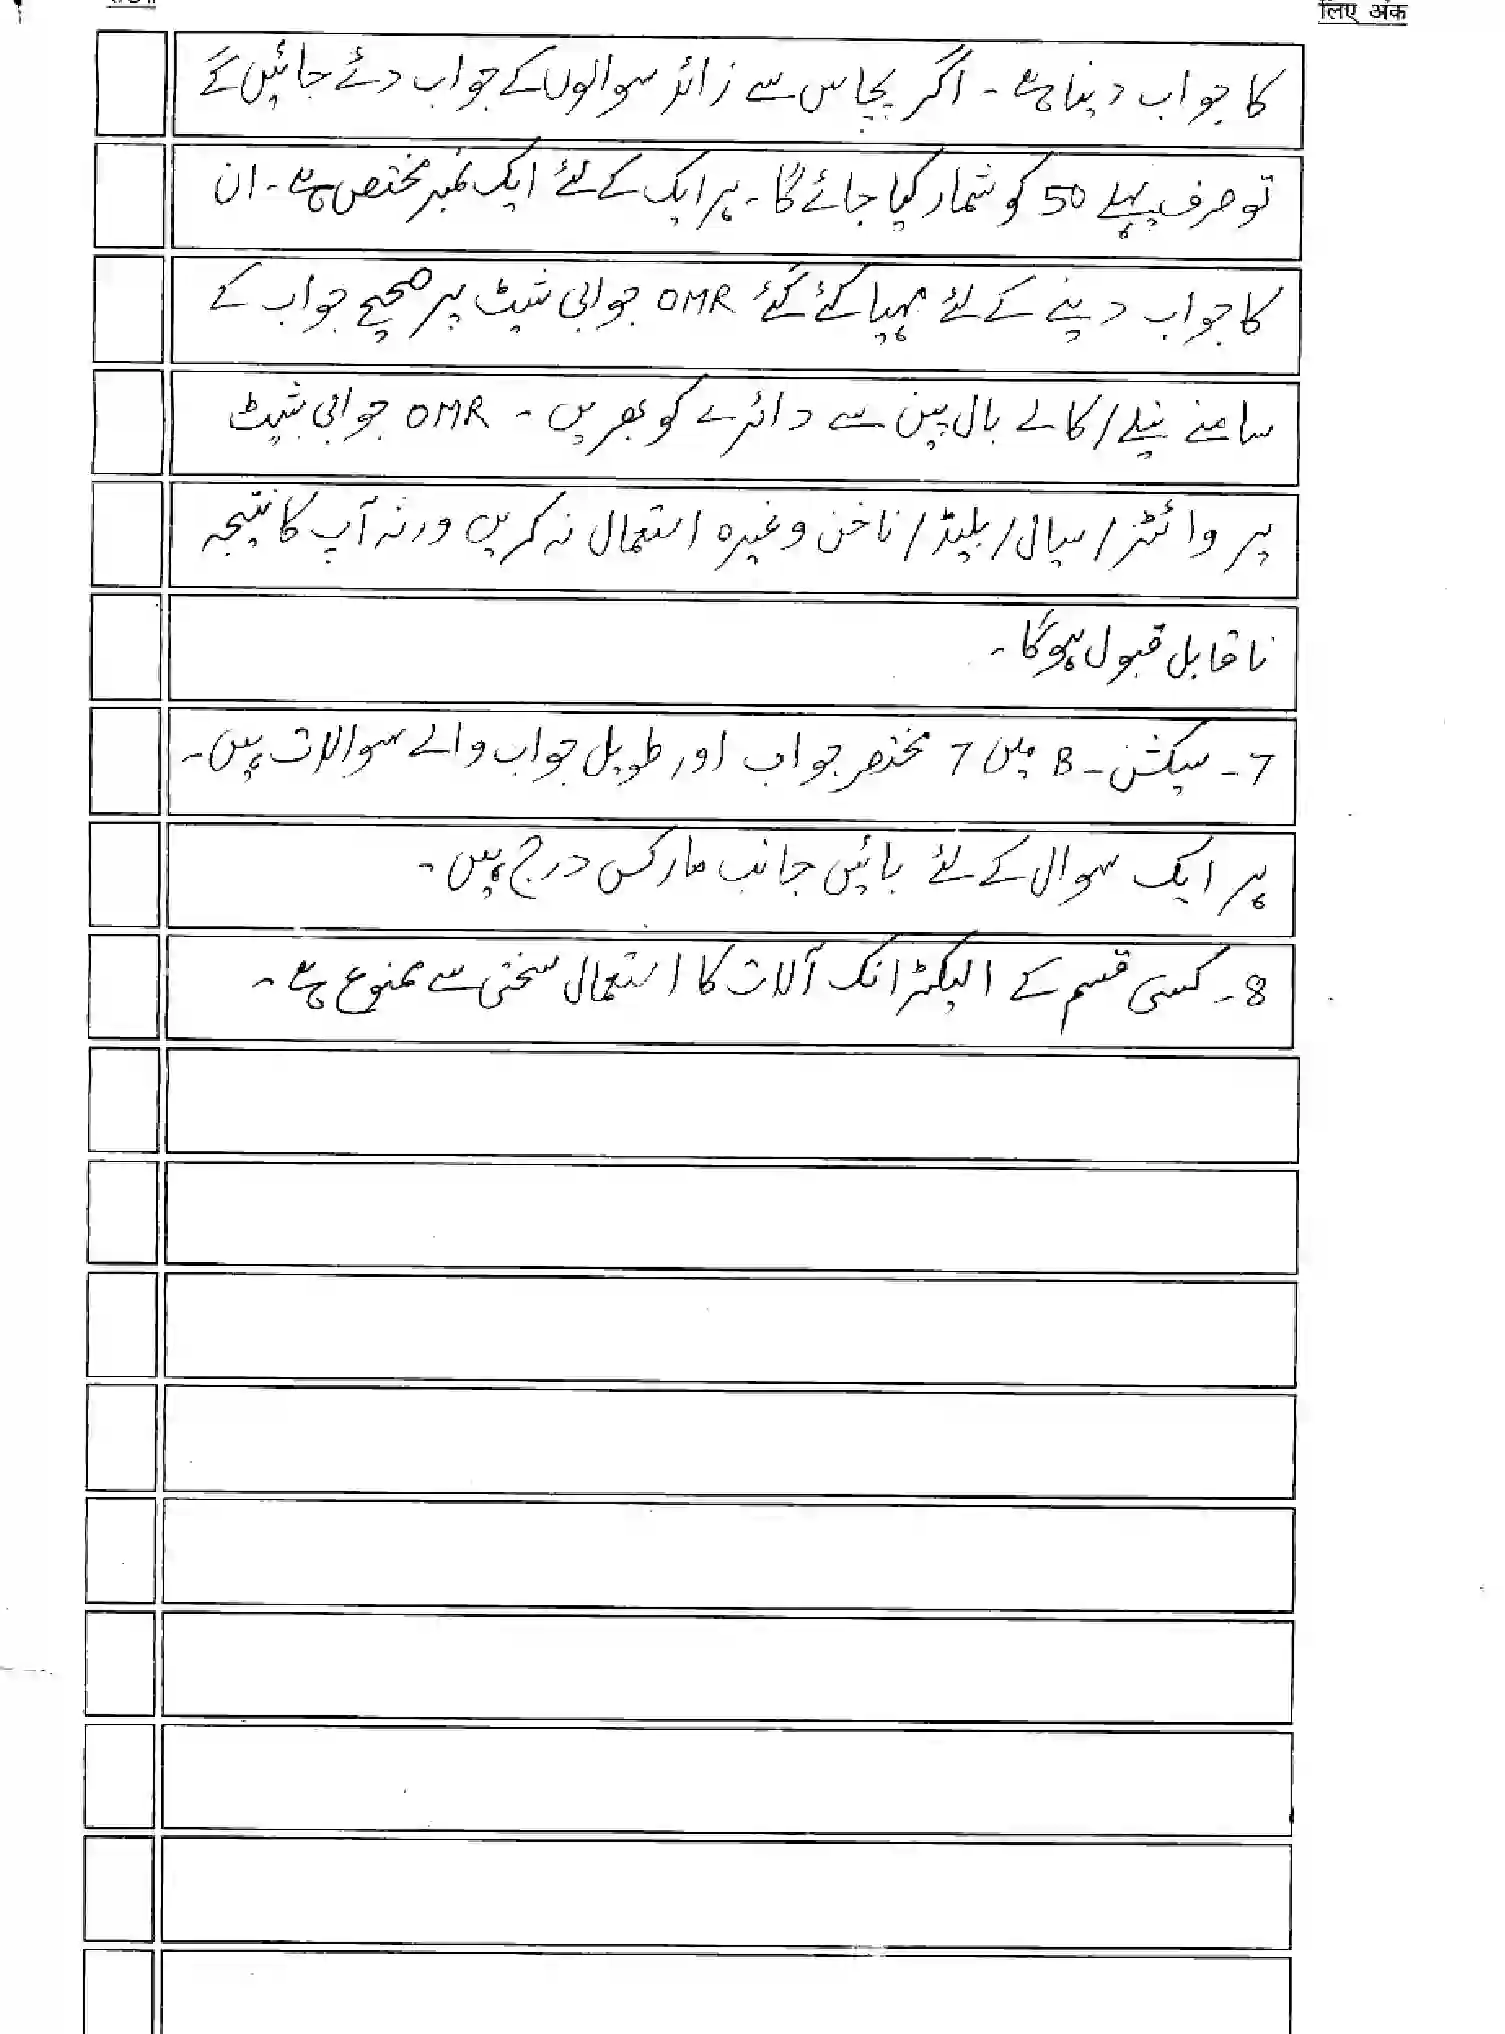 लिए अंक
کا جواب دینا ہے۔ اگر پچاس سے زائد سوالوں کے جواب دئے جائیں گے
تو صرف پہلے 50 کو شمار کیا جائے گا۔ ہر ایک کے لئے ایک نمبر مختص ہے۔ ان
کا جواب دینے کے لئے مہیا کئے گئے OMR جوابی شیٹ پر صحیح جواب کے
سامنے نیلے/کالے بال پین سے دائرے کو بھریں۔ OMR جوابی شیٹ
پر وائٹنر/سیال/بلیڈ/ناخن وغیرہ استعمال نہ کریں ورنہ آپ کا نتیجہ
ناقابل قبول ہوگا۔
7۔ سیکشن۔ B میں 7 مختصر جواب اور طویل جواب والے سوالات ہیں۔
ہر ایک سوال کے لئے بائیں جانب مارکس درج ہیں۔
8۔ کسی قسم کے الیکٹرانک آلات کا استعمال سختی سے ممنوع ہے۔